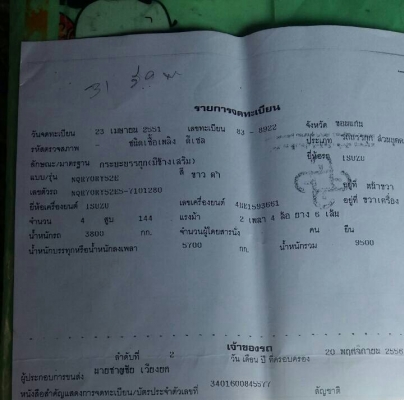 31 
รายการจดทะเบียน
วันจดทะเบียน 23 เมษายน 2551 เลขทะเบียน 83 - 0922 จังหวัด ขอนแก่น
รหัสตรวจสภาพ - ชนิดเชื้อเพลิง ดีเซล ประเภท
ลักษณะ/มาตรฐาน กระบะบรรทุก(มีข้างเสริม) ยี่ห้อรถ ISUZU
แบบ/รุ่น สี ขาว ฟ้า
เลขตัวรถ อยู่ที่ หน้าขวา
ยี่ห้อเครื่องยนต์ ISUZU เลขเครื่องยนต์ อยู่ที่ ขวาเครื่อง
จำนวน 4 สูบ 144 แรงม้า 2 เพลา 4 ล้อ ยาง 6 เส้น
น้ำหนักรถ 3800 กก. จำนวนผู้โดยสารนั่ง คน ยืน
น้ำหนักบรรทุกหรือน้ำหนักลงเพลา 5700 กก. น้ำหนักรวม 9500
เจ้าของรถ
ลำดับที่ 2 วัน เดือน ปี ที่ครอบครอง 20 พฤศจิกายน 2556
ผู้ประกอบการขนส่ง นายชาญชัย เวียงยศ
หนังสือสำคัญแสดงการจดทะเบียน/บัตรประจำตัวเลขที่ 3401600845577 สัญชาติ